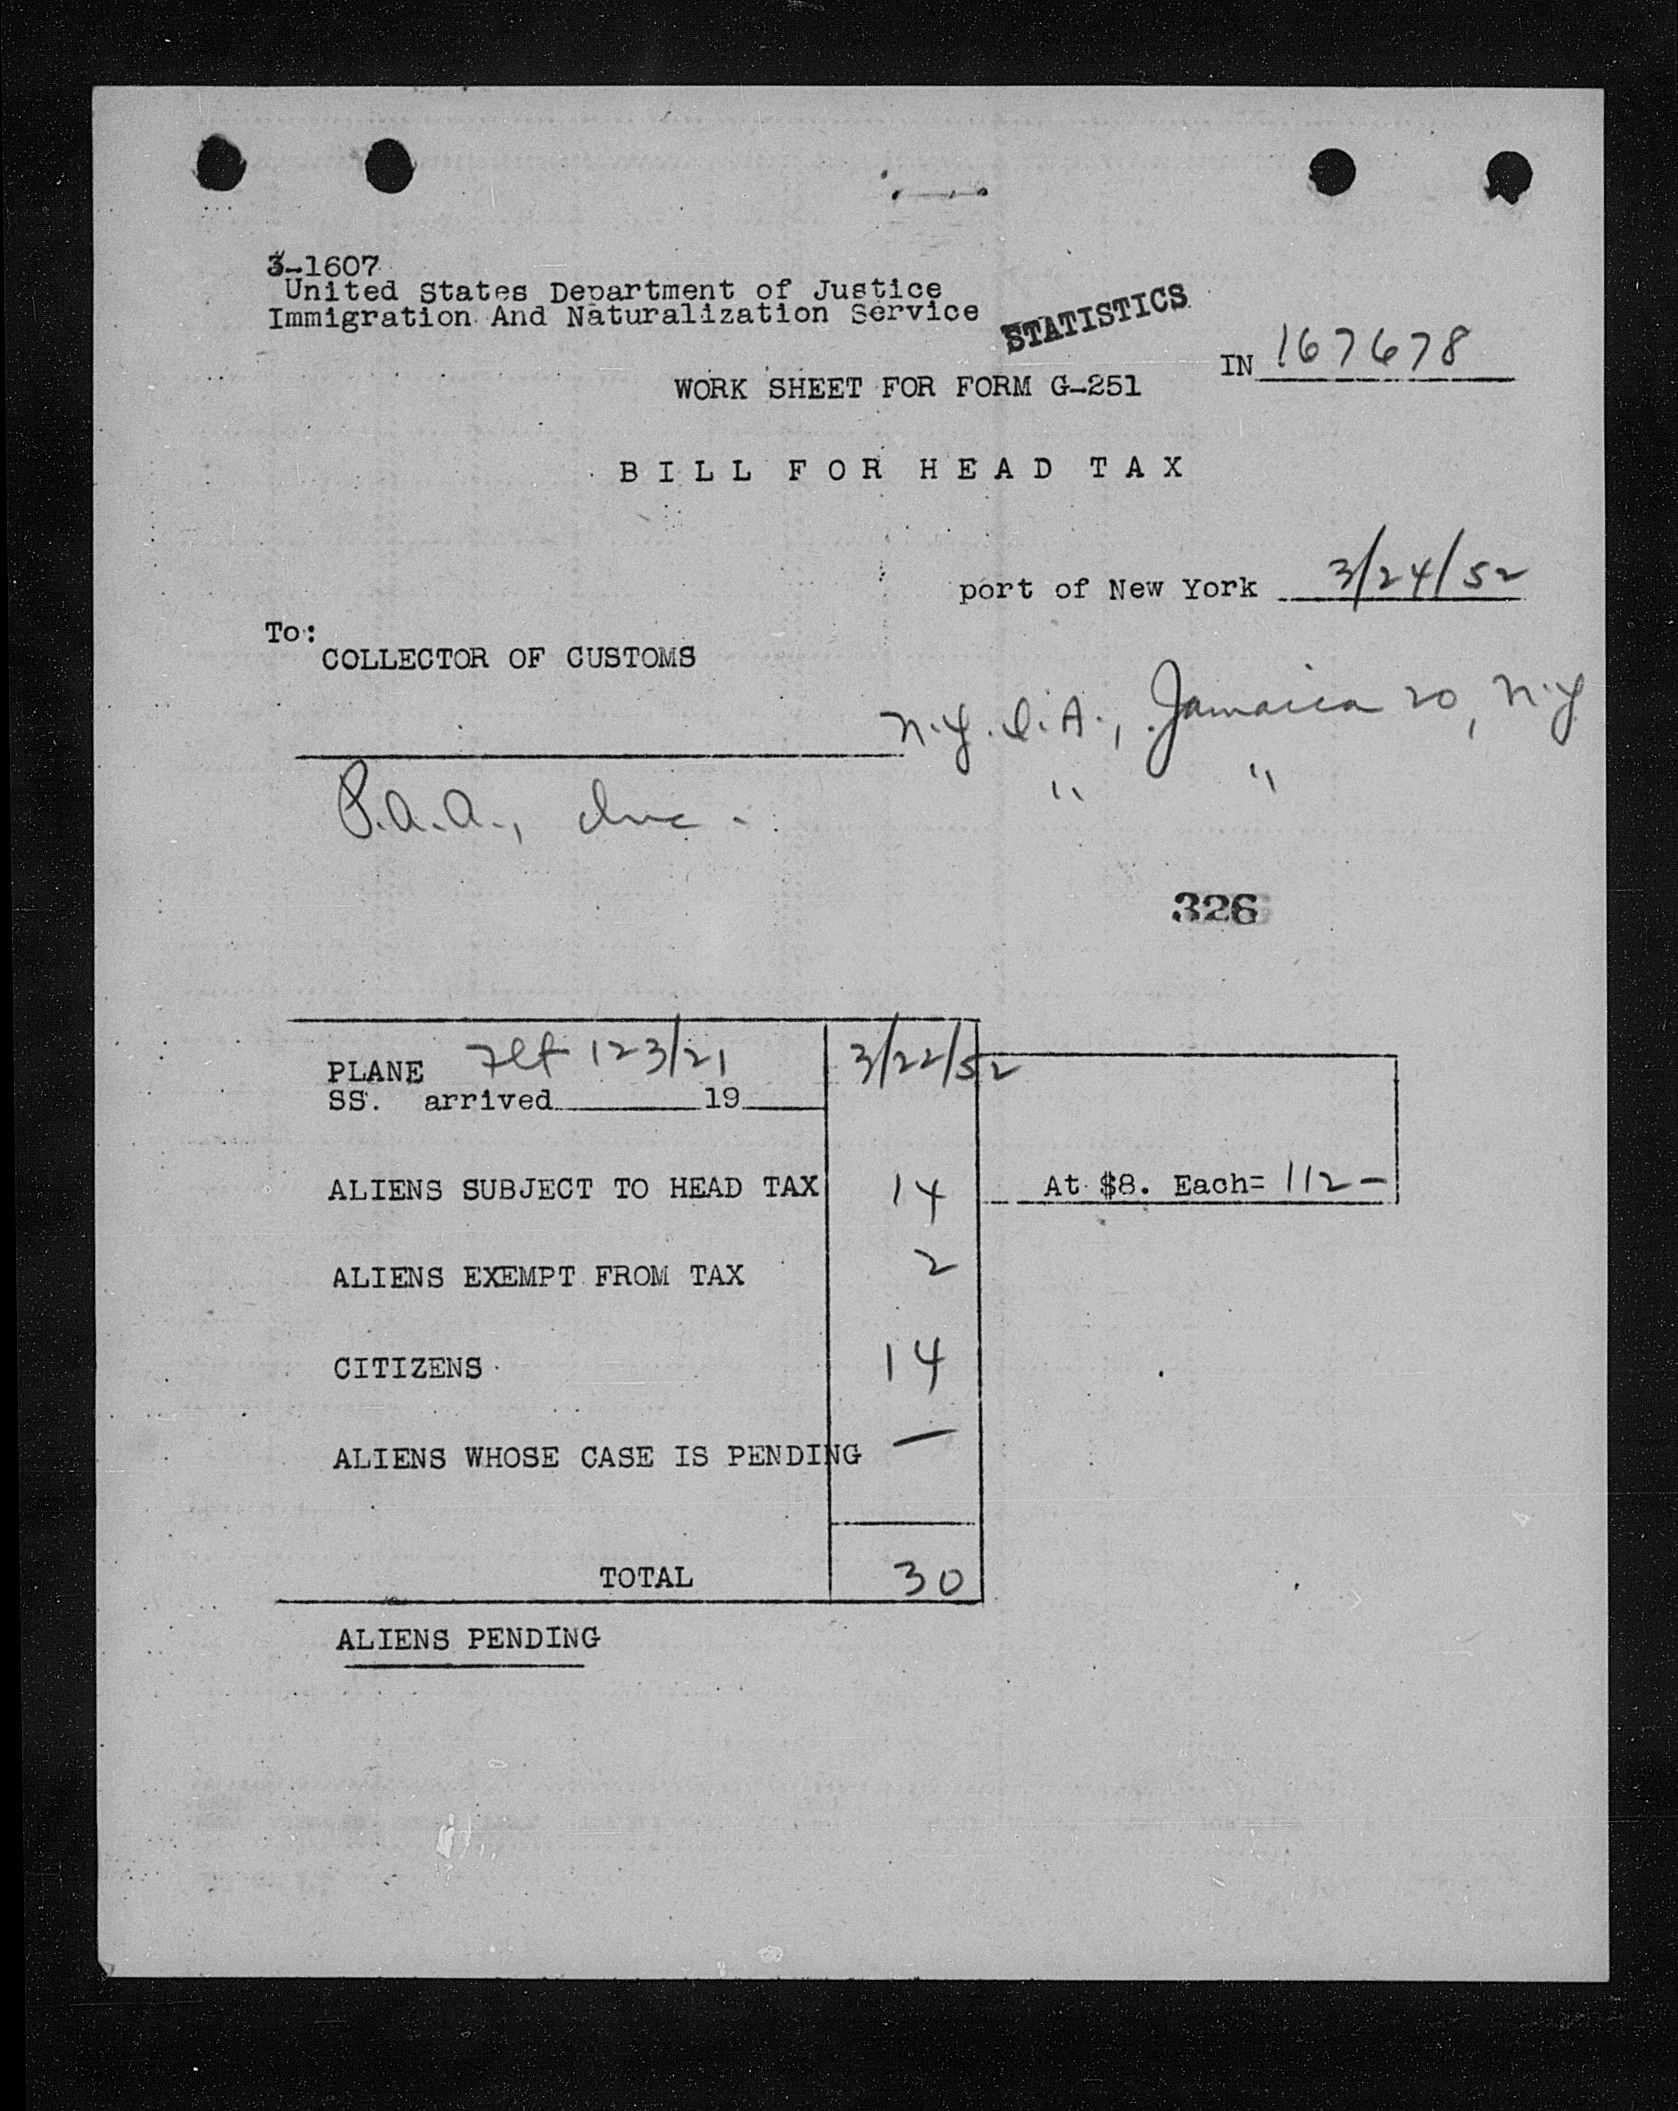 3-1607
United States Department of Justice
Immigration And Naturalization Service
STATISTICS
IN 167678
WORK SHEET FOR FORM G-251
BILL FOR HEAD TAX
port of New York 3/24/52
To:
COLLECTOR OF CUSTOMS
N.Y.I.A., Jamaica 20, N.Y
P.A.A., Inc. " "
326
PLANE Flt 123/21 3/22/52
SS. arrived 19
ALIENS SUBJECT TO HEAD TAX 14 At $8. Each= 112-
ALIENS EXEMPT FROM TAX 2
CITIZENS 14
ALIENS WHOSE CASE IS PENDING —
TOTAL 30
ALIENS PENDING